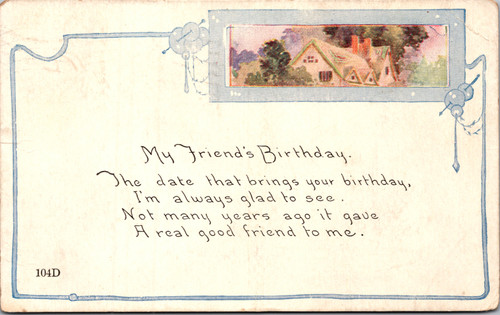 My Friend's Birthday.
The date that brings your birthday,
I'm always glad to see.
Not many years ago it gave
A real good friend to me.
104D